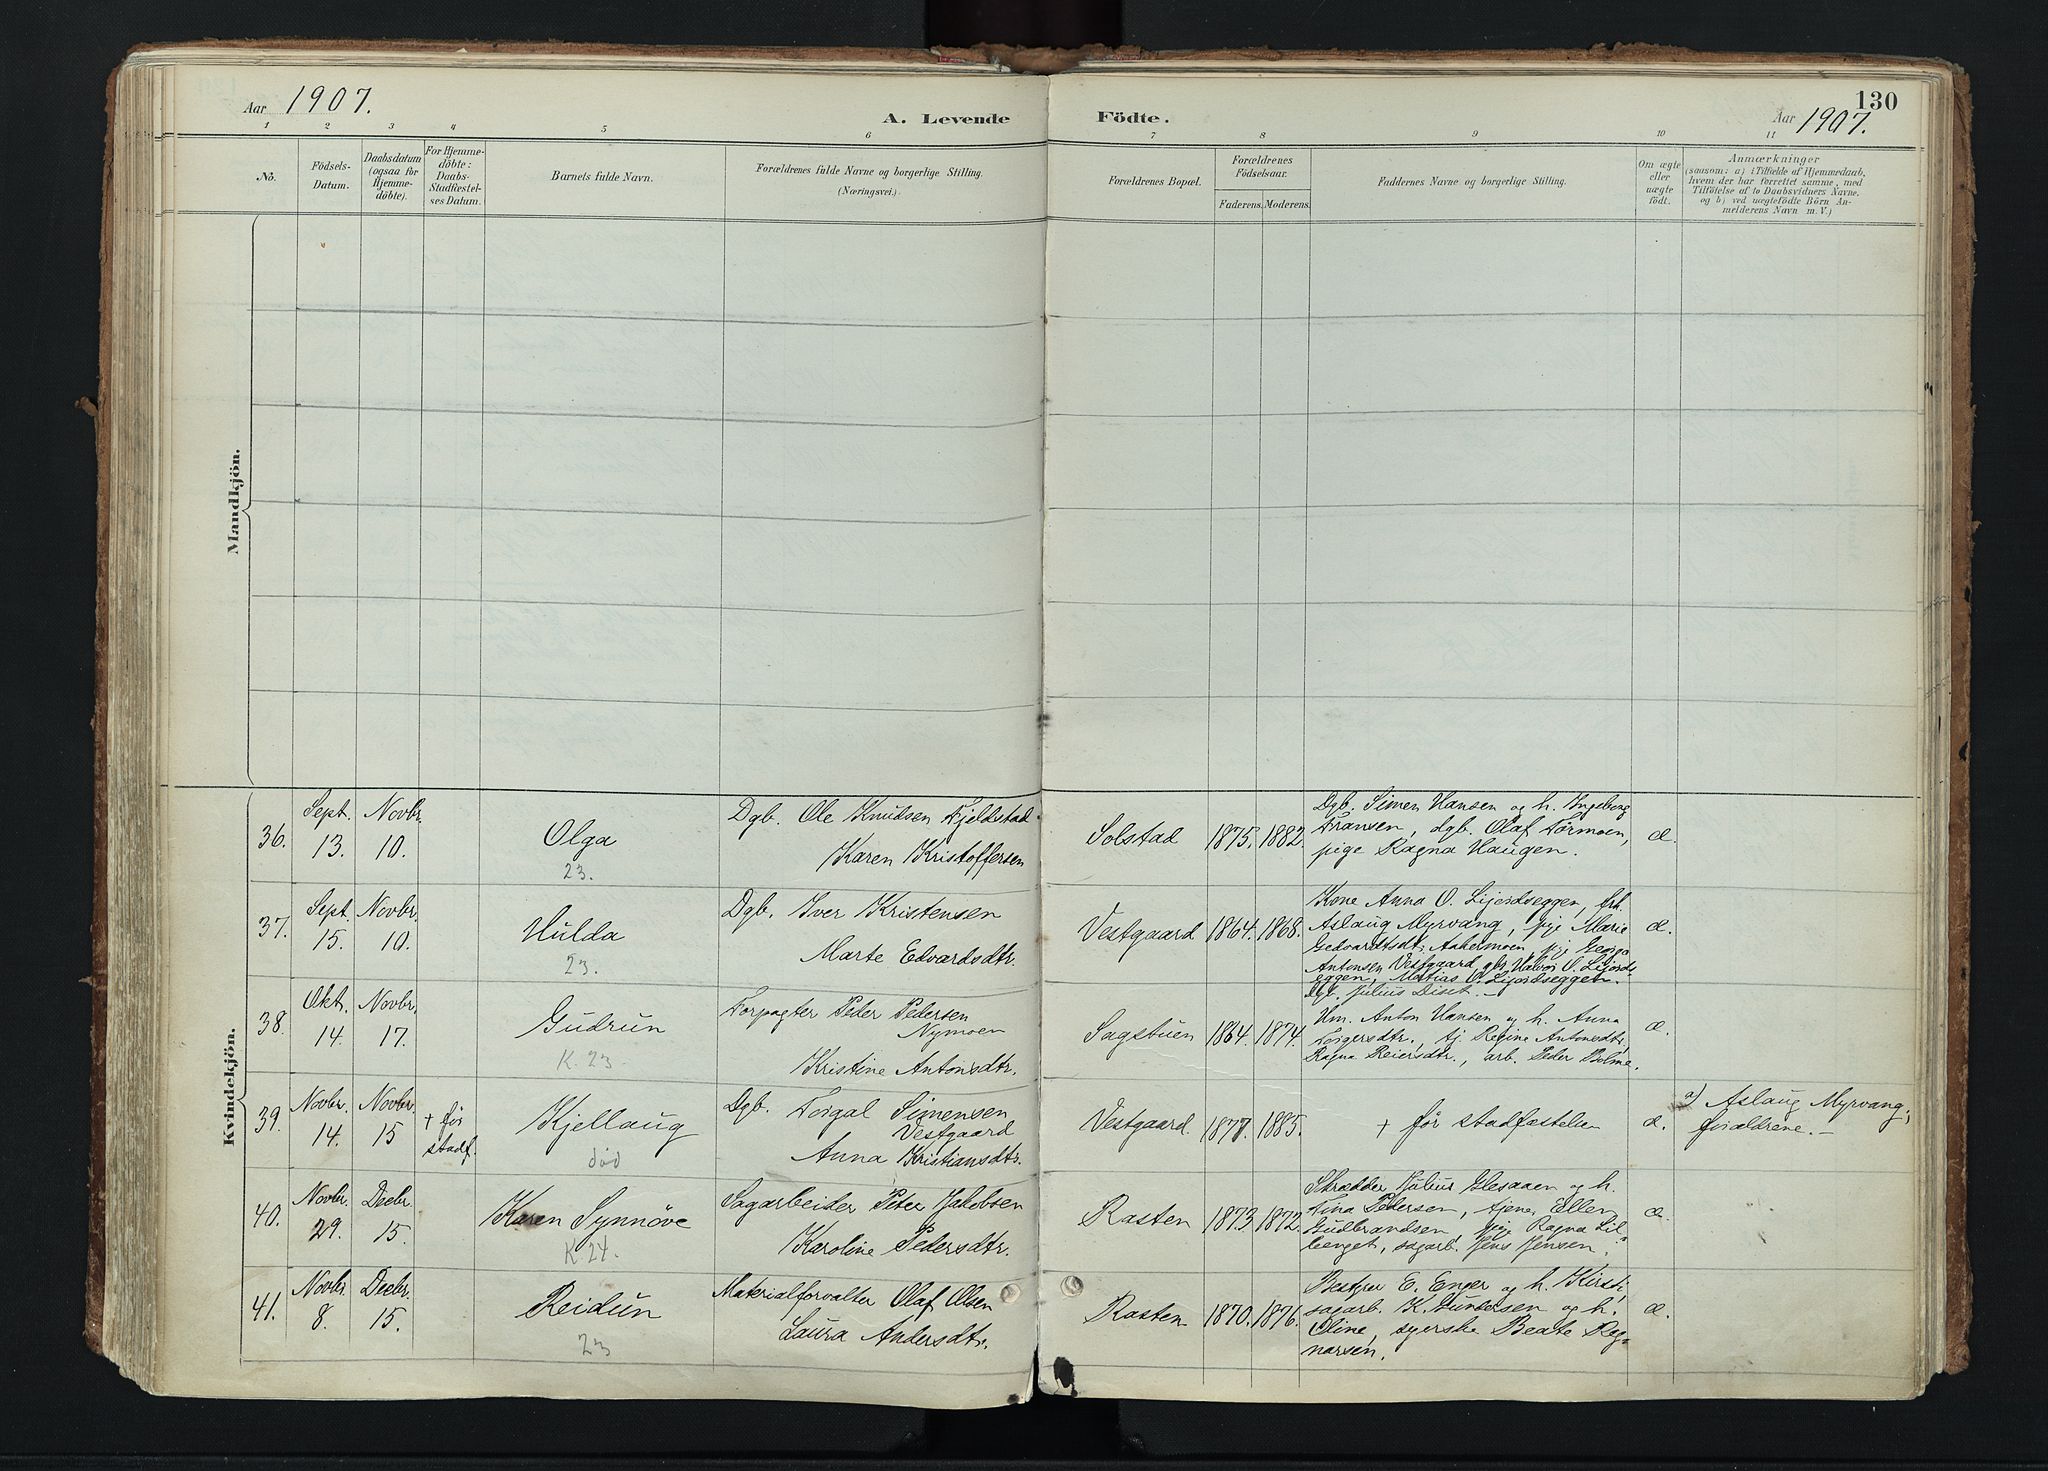 Aar 1907.
A. Levende Födte.
130
Aar 1907.
1 2 3 4 5 6 7 8 9 10 11
No.
Födsels-
Datum.
Daabsdatum
(ogsaa for
Hjemme-
döbte).
For Hjemme-
döbte:
Daabs-
Stadfæstel-
ses Datum.
Barnets fulde Navn.
Forældrenes fulde Navne og borgerlige Stilling.
(Næringsvei.)
Forældrenes Bopæl.
Forældrenes
Födselsaar.
Faderens. Moderens.
Faddernes Navne og borgerlige Stilling.
Om ægte
eller
uægte
födt.
Anmærkninger
(saasom: a) i Tilfælde af Hjemmedaab,
hvem der har forrettet samme, med
Tilföielse af to Daabsvidners Navne,
og b) ved uægtefödte Börn An-
melderens Navn m. V.)
Mandkjön.
Kvindekjön.
36.
Sept.
13.
Novbr.
10.
Olga
23.
Dgb. Ole Knudsen Fjeldstad
Karen Kristoffersen
Solstad
1875. 1882.
Dgb. Simen Hansen og h. Ingeborg
Fransen, dgb. Olaf Formoen,
pige Ragna Haugen.
æ.
37.
Sept.
15.
Novbr.
10.
Hulda
23.
Dgb. Iver Kristensen
Marte Edvardsdtr.
Vestgaard
1864. 1868.
Kone Anna O. Lijordseggen, frk.
Aslaug Myrvang, pige Marie
Gedvardtsdt. Aakermoen, pige Georga
Antonsen Vestgaard, gbr. Halvor O. Lijords-
eggen, Matias O. Lijordseggen.
Dgb. Julius Diset.
æ.
38.
Okt.
14.
Novbr.
17.
Gudrun
K. 23
Forpagter Peder Pedersen
Nymoen
Kristine Antonsdtr.
Sagstuen
1864. 1874.
Hm. Anton Hansen og h. Anna
Torgersdtr., tj. Regine Antonsdtr,
Ragna Reiersdtr., arb. Peder Bolme.
æ.
39.
Novbr.
14.
Novbr.
15
+ før
stadf.
Kjellaug
død
Dgb. Torgal Simensen
Vestgaard
Anna Kristiansdtr.
Vestgaard
1877. 1885.
+ før stadfæstelsen
æ.
a) Aslaug Myrvang;
forældrene.
40.
Novbr.
29.
Decbr.
15.
Karen Synnöve
K 24.
Sagarbeider Peter Jakobsen
Karoline Pedersdtr.
Rasten
1873. 1872.
Skrædder Julius Glesaaen og h.
Tina Pedersen, tjene. Ellen
Gudbrandsen, pige Ragna Lil-
benget, sagarb. Jens Jensen.
æ.
41.
Novbr.
8.
Decbr.
15.
Reidun
23
Materialforvalter Olaf Olsen
Laura Andersdtr.
Rasten
1870. 1876.
Bestyrer E. Enger og h. Kirsti,
sagarb. K. Gundersen og h.
Oline, syerske Beate Reg-
narsen.
æ.